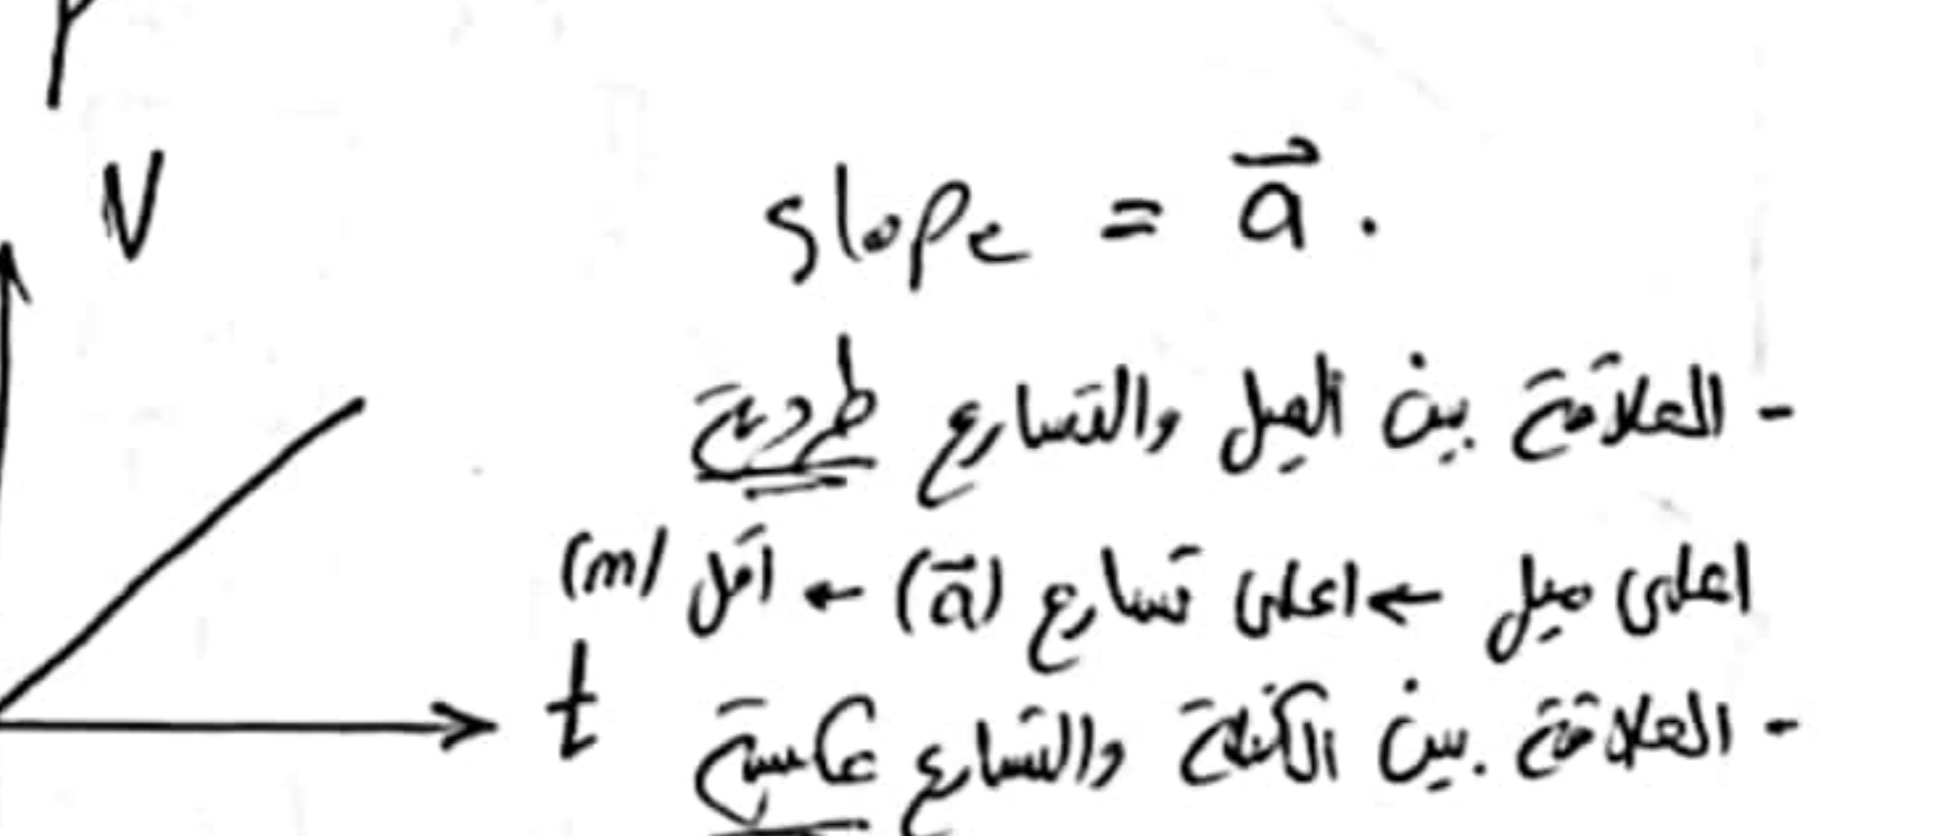 V
slope = a⃗ .
- العلاقة بين الميل والتسارع طردية
اعلى ميل ← اعلى تسارع (a⃗) ← اقل (m)
t
- العلاقة بين الكتلة والتسارع عكسية